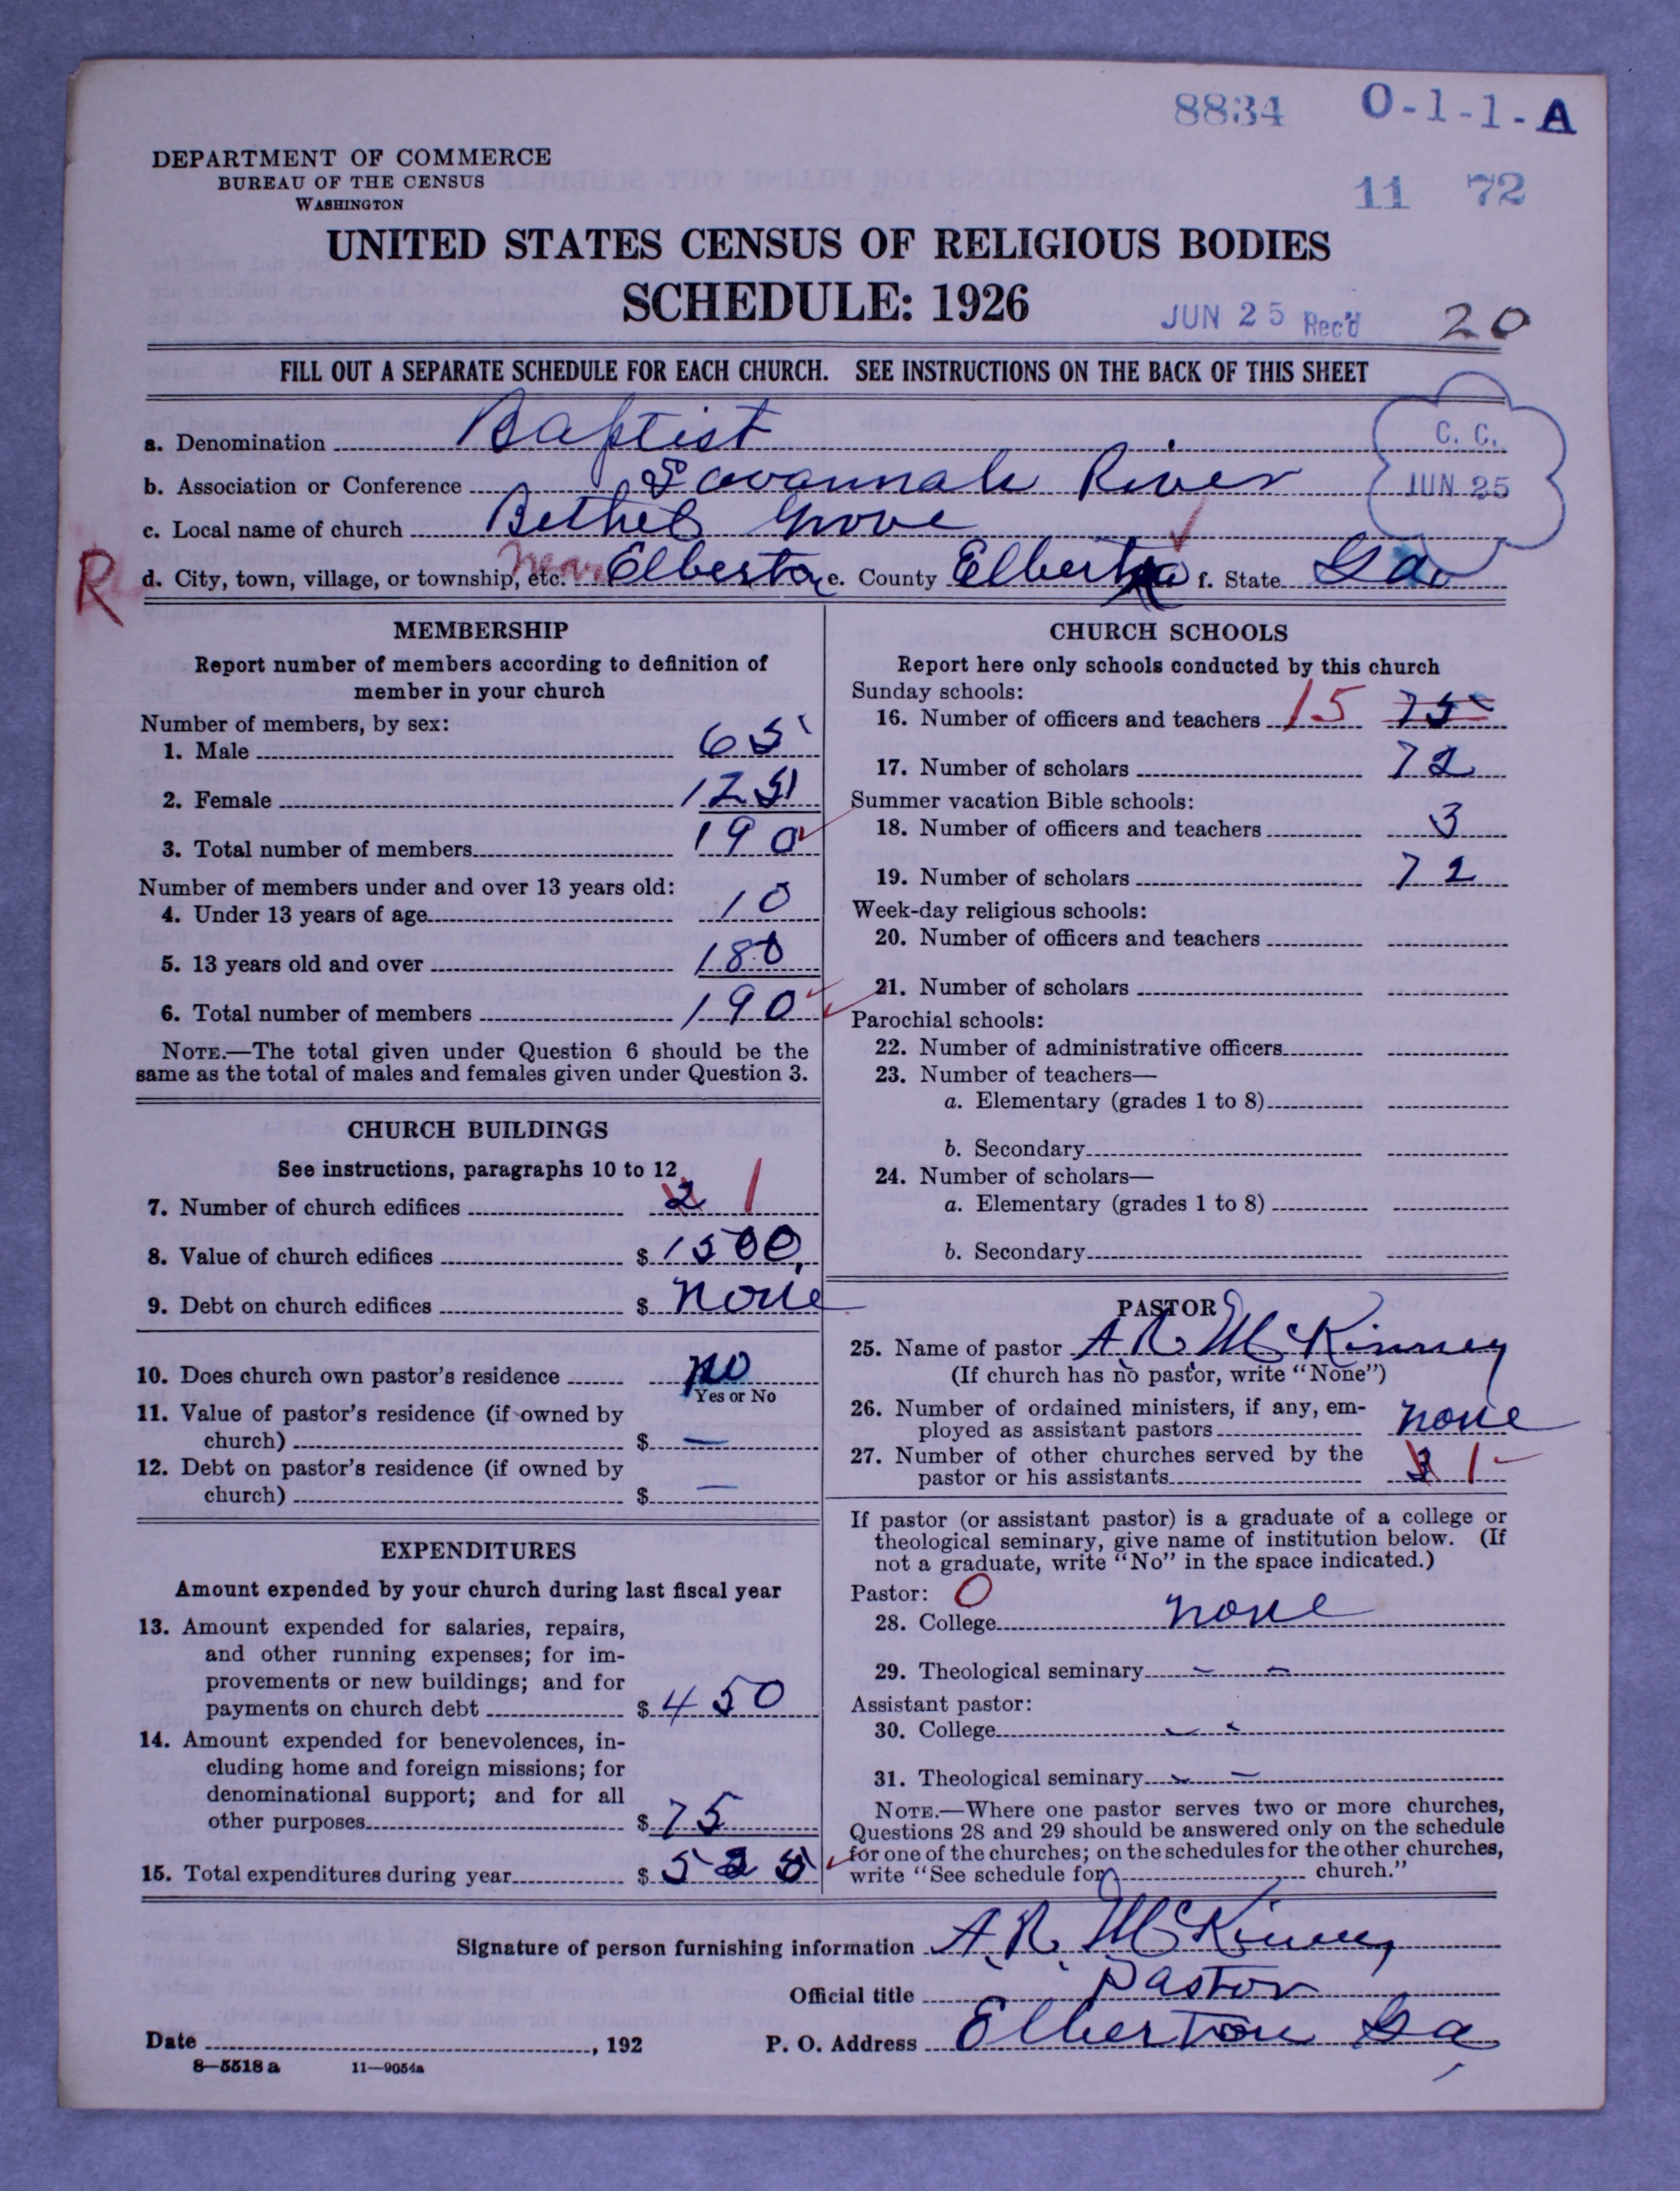 8834 O-1-1-A
DEPARTMENT OF COMMERCE
BUREAU OF THE CENSUS
WASHINGTON
11 72
UNITED STATES CENSUS OF RELIGIOUS BODIES
SCHEDULE: 1926
JUN 25 Rec'd 20
FILL OUT A SEPARATE SCHEDULE FOR EACH CHURCH. SEE INSTRUCTIONS ON THE BACK OF THIS SHEET
a. Denomination Baptist
C. C.
b. Association or Conference Savannah River
JUN 25
c. Local name of church Bethel Grove
R d. City, town, village, or township, etc. near Elberton e. County Elbert f. State Ga.
MEMBERSHIP
Report number of members according to definition of
member in your church
Number of members, by sex:
1. Male 65
2. Female 125
3. Total number of members 190
Number of members under and over 13 years old:
4. Under 13 years of age 10
5. 13 years old and over 180
6. Total number of members 190
NOTE.—The total given under Question 6 should be the
same as the total of males and females given under Question 3.
CHURCH BUILDINGS
See instructions, paragraphs 10 to 12
7. Number of church edifices 2 1
8. Value of church edifices $ 1500.
9. Debt on church edifices $ none
10. Does church own pastor's residence no
Yes or No
11. Value of pastor's residence (if owned by
church) $ —
12. Debt on pastor's residence (if owned by
church) $ —
EXPENDITURES
Amount expended by your church during last fiscal year
13. Amount expended for salaries, repairs,
and other running expenses; for im-
provements or new buildings; and for
payments on church debt $ 450
14. Amount expended for benevolences, in-
cluding home and foreign missions; for
denominational support; and for all
other purposes $ 75
15. Total expenditures during year $ 525
CHURCH SCHOOLS
Report here only schools conducted by this church
Sunday schools:
16. Number of officers and teachers 15 75
17. Number of scholars 72
Summer vacation Bible schools:
18. Number of officers and teachers 3
19. Number of scholars 72
Week-day religious schools:
20. Number of officers and teachers
21. Number of scholars
Parochial schools:
22. Number of administrative officers
23. Number of teachers—
a. Elementary (grades 1 to 8)
b. Secondary
24. Number of scholars—
a. Elementary (grades 1 to 8)
b. Secondary
PASTOR
25. Name of pastor A. R. McKinney
(If church has no pastor, write "None")
26. Number of ordained ministers, if any, em-
ployed as assistant pastors none
27. Number of other churches served by the
pastor or his assistants 3 1
If pastor (or assistant pastor) is a graduate of a college or
theological seminary, give name of institution below. (If
not a graduate, write "No" in the space indicated.)
Pastor: O
28. College none
29. Theological seminary - -
Assistant pastor:
30. College - -
31. Theological seminary - -
NOTE.—Where one pastor serves two or more churches,
Questions 28 and 29 should be answered only on the schedule
for one of the churches; on the schedules for the other churches,
write "See schedule for church."
Signature of person furnishing information A. R. McKinney
Official title Pastor
Date , 192 P. O. Address Elberton Ga
8—5518 a 11—9054a